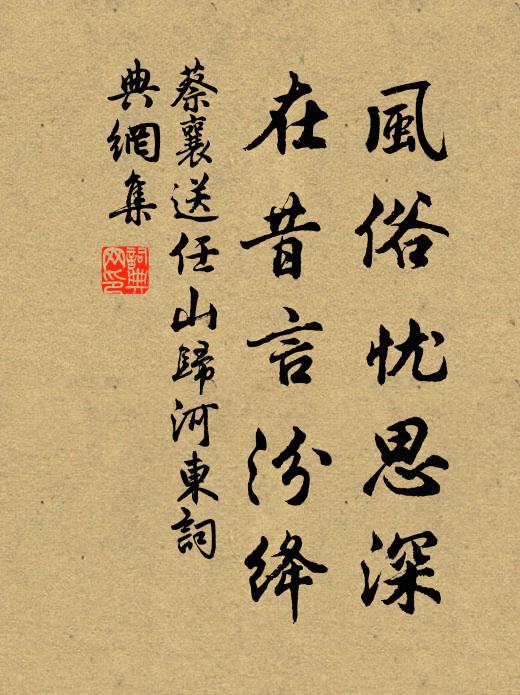 風俗忧思深
在昔言汾绛
蔡襄送任山歸河東詞
典網集
詞典网印